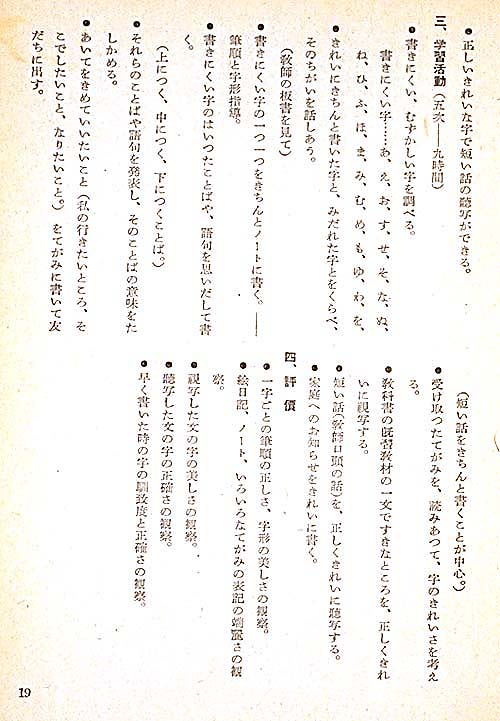 ●正しいきれいな字で短い話の聴写ができる。
三、学習活動（五次――九時間）
●書きにくい、むずかしい字を調べる。
書きにくい字……あ、え、お、す、せ、そ、な、ぬ、
ね、ひ、ふ、ほ、ま、み、む、め、も、ゆ、わ、を、
きれいにきちんと書いた字と、みだれた字とをくらべ、
そのちがいを話しあう。
（教師の板書を見て）
●書きにくい字の一つ一つをきちんとノートに書く。――
筆順と字形指導。
●書きにくい字のはいつたことばや、語句を思いだして書
く。
（上につく、中につく、下につくことば。）
●それらのことばや語句を発表し、そのことばの意味をた
しかめる。
●あいてをきめていいたいこと（私の行きたいところ、そ
こでしたいこと、なりたいこと。）をてがみに書いて友
だちに出す。
（短い話をきちんと書くことが中心。）
●受け取つたてがみを、読みあつて、字のきれいさを考え
る。
●教科書の既習教材の一文ですきなところを、正しくきれ
いに視写する。
●短い話（教師口頭の話）を、正しくきれいに聴写する。
●家庭へのお知らせをきれいに書く。
四、評價
●一字ごとの筆順の正しさ、字形の美しさの観察。
●絵日記、ノート、いろいろなてがみの表記の端麗さの観
察。
●視写した文の字の美しさの観察。
●聴写した文の字の正確さの観察。
●早く書いた時の字の馴致度と正確さの観察。
19